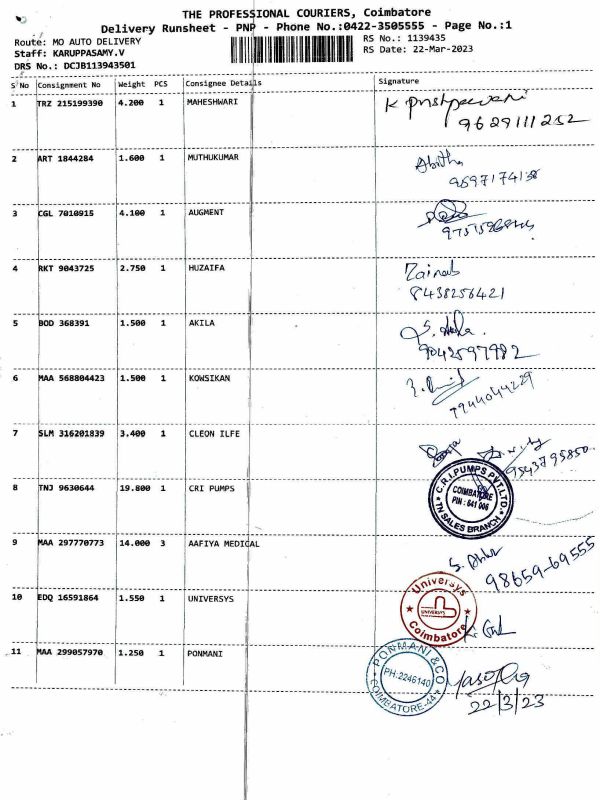 THE PROFESSIONAL COURIERS, Coimbatore
Delivery Runsheet - PNP - Phone No.:0422-3505555 - Page No.:1
Route: MO AUTO DELIVERY
Staff: KARUPPASAMY.V
DRS No.: DCJB113943501
RS No.: 1139435
RS Date: 22-Mar-2023
S No Consignment No Weight PCS Consignee Details Signature
1 TRZ 215199390 4.200 1 MAHESHWARI
9629111252
2 ART 1844284 1.600 1 MUTHUKUMAR Abitha
3 CGL 7010915 4.100 1 AUGMENT
4 RKT 9043725 2.750 1 HUZAIFA Zainab
8438256421
5 BOD 368391 1.500 1 AKILA S. Akila.
9042597982
6 MAA 568804423 1.500 1 KOWSIKAN
7944044229
7 SLM 316201839 3.400 1 CLEON ILFE
9543795850
8 TNJ 9630644 19.800 1 CRI PUMPS
C.R.I.PUMPS PVT.LTD.
COIMBATORE
PIN : 641 006
TN SALES BRANCH
9 MAA 297770773 14.000 3 AAFIYA MEDICAL
98659-69555
10 EDQ 16591864 1.550 1 UNIVERSYS
Universys
UNIVERSYS
Coimbatore
11 MAA 299057970 1.250 1 PONMANI
PONMANI & CO
PH:2246140
COIMBATORE-44
22/3/23